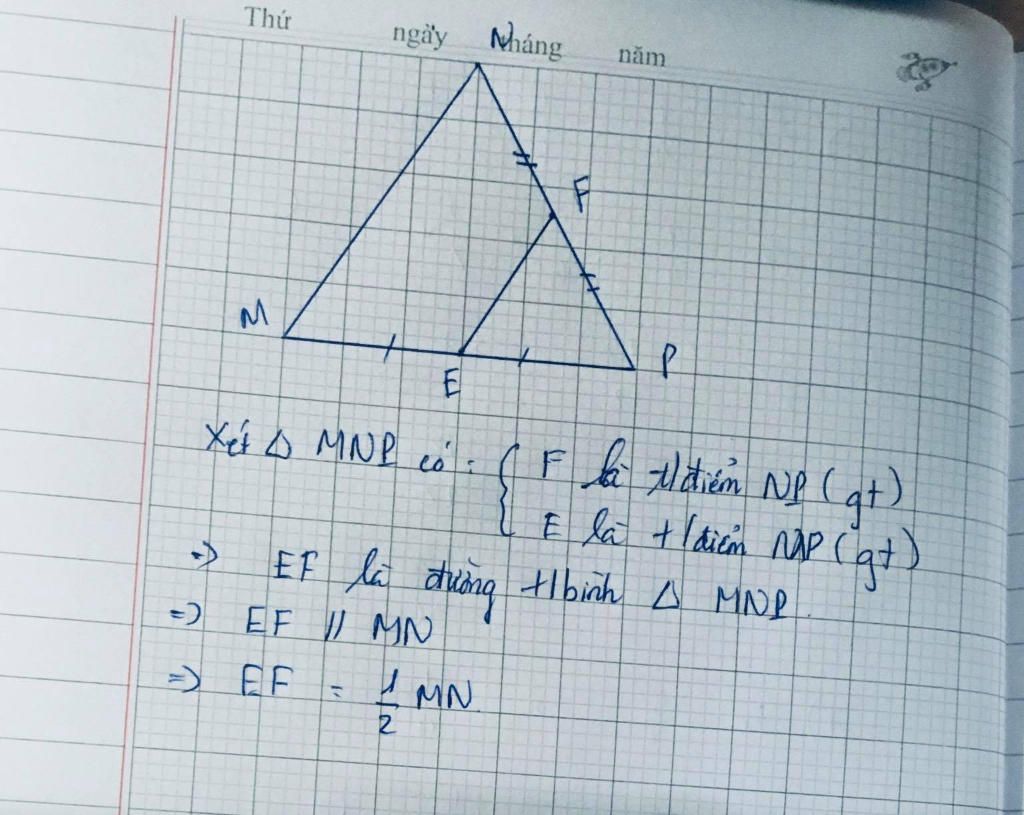 Thứ ngày tháng năm
N
F
M
E
P
Xét Δ MNP có : { F là t/điểm NP (gt)
E là t/điểm MP (gt)
=> EF là đường t/bình Δ MNP.
=> EF // MN
=> EF = 1/2 MN